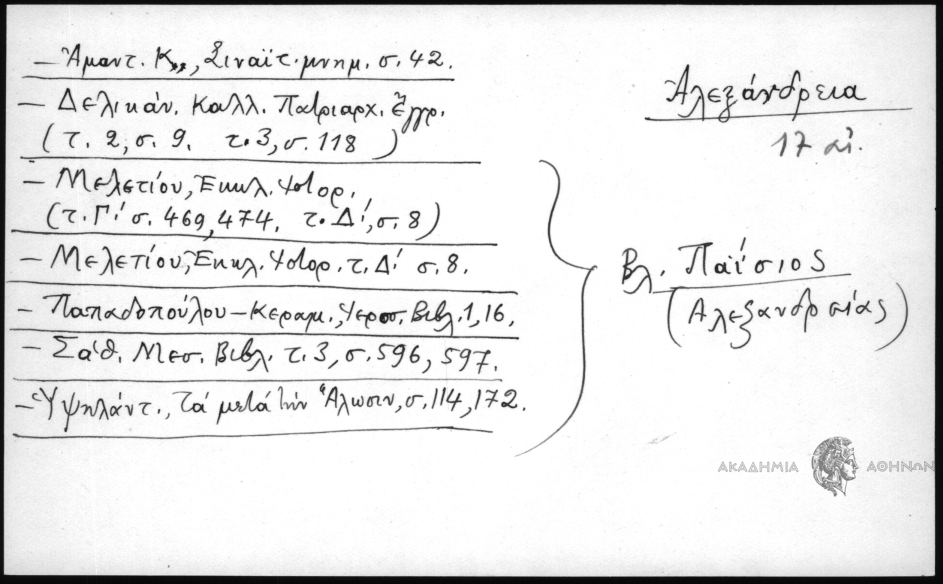 — Ἀμαντ. Κ., Σιναϊτ. μνημ. σ. 42.
— Δελικάν. Καλλ. Πατριαρχ. Ἔγγρ.
(τ. 2, σ. 9. τ. 3, σ. 118)
— Μελετίου, Ἐκκλ. Ἱστορ.
(τ. Γ.' σ. 469, 474. τ. Δ', σ. 8)
— Μελετίου, Ἐκκλ. Ἱστορ. τ. Δ' σ. 8.
— Παπαδοπούλου – Κεραμ., Ἱεροσ. Βιβλ. 1, 16.
— Σάθ. Μεσ. Βιβλ. τ. 3, σ. 596, 597.
— Ὑψηλάντ., Τά μετά τήν Ἅλωσιν, σ. 114, 172.
Ἀλεξάνδρεια
17 αἰ.
Βλ. Παΐσιος
(Ἀλεξανδρείας)
ΑΚΑΔΗΜΙΑ ΑΘΗΝΩΝ